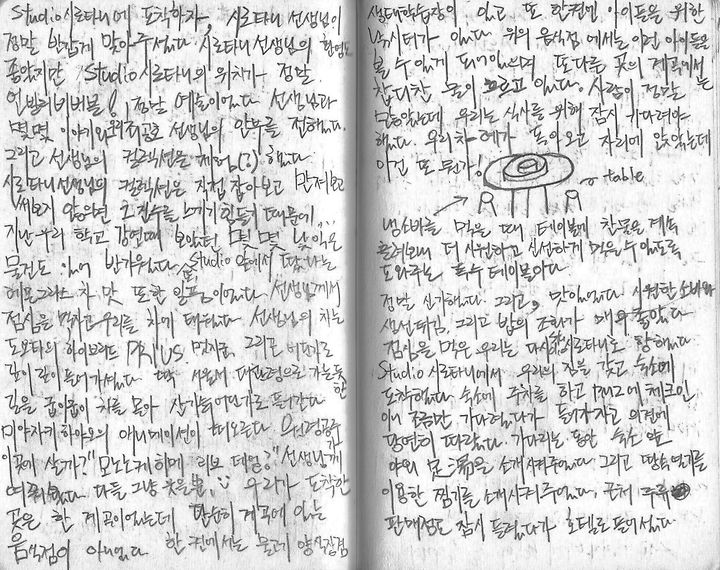 Studio시로타니에 도착하자, 시로타니 선생님이
정말 반갑게 맞아주셨다. 시로타니 선생님의 환영도
좋았지만 Studio 시로타니의 위치가 정말
언빌리버블! 정말 예술이었다 선생님과
몇몇 이야기와 선생님의 안부를 전했다.
그리고 선생님의 컬렉션을 체험(?)했다
시로타니선생님의 컬렉션은 직접 잡아보고 만져보고
써보지 않으면 느끼기 힘들기 때문에
지난 우리 학교 강연때 보았던 몇몇 낯익은
물건도 있어 반가웠다. Studio 앞에서
차 맛 또한 일품이었다. 선생님께서
점심을 우리를 차에 태웠다 선생님의 차는
도요타의 하이브리드 PRIUS. 그리곤
깊이 깊이 들어가셨다 딱 서울서 대관령으로 가는 듯한
길을 굽이굽이 차를 몰아 들어간다
미야자키하야오의 애니메이션이 떠오른다
이곳에 살까?" 모노노케히메 선생님께
여쭤봤다. 다들 그냥 웃을뿐. 우리가 도착한
곳은 한 계곡이었는데 단순히 계곡에 있는
음식점이 아니었다 한 켠에서는 물고기 양식장겸
생태학습장이 있고 또 한켠엔 아이들을 위한
낚시터가 있다. 위의 음식점에서는 이런 아이들을
볼 수 있게 되어 있으며 또다른 곳의 계곡에서는
찹디찬 물이 흐르고 있다. 사람이 정말
많았는데 우리는 식사를 위해 잠시 기다려야
했다. 우리차례가 돌아오고 자리에 앉았는데
이건 또 뭔가!
table
냉소바를 먹을 때 테이블에 찬물을 계속
흘려보내 더 시원하고 신선하게 먹을 수 있도록
도와주는 특수 테이블이다
정말 신기했다. 그리고, 맛있었다. 시원한 소바와
생선튀김, 그리고 밥의 조화가 매우 좋았다
점심을 먹은 우리는 다시한번 시로타니로 향했다
Studio 시로타니에서 우리의 짐을 갖고 숙소에
도착했다. 숙소에 주차를 하고 체크인
이니 조금만 기다렸다가 들어가자고 의견에
당연히 따랐다. 기다리는 동안 숙소 앞
야외 足湯을 소개시켜주었다. 그리고 땅속열기를
이용한 찜기를 소개시켜주었다. 근처
판매점도 잠시 들렸다가 호텔로 들어섰다